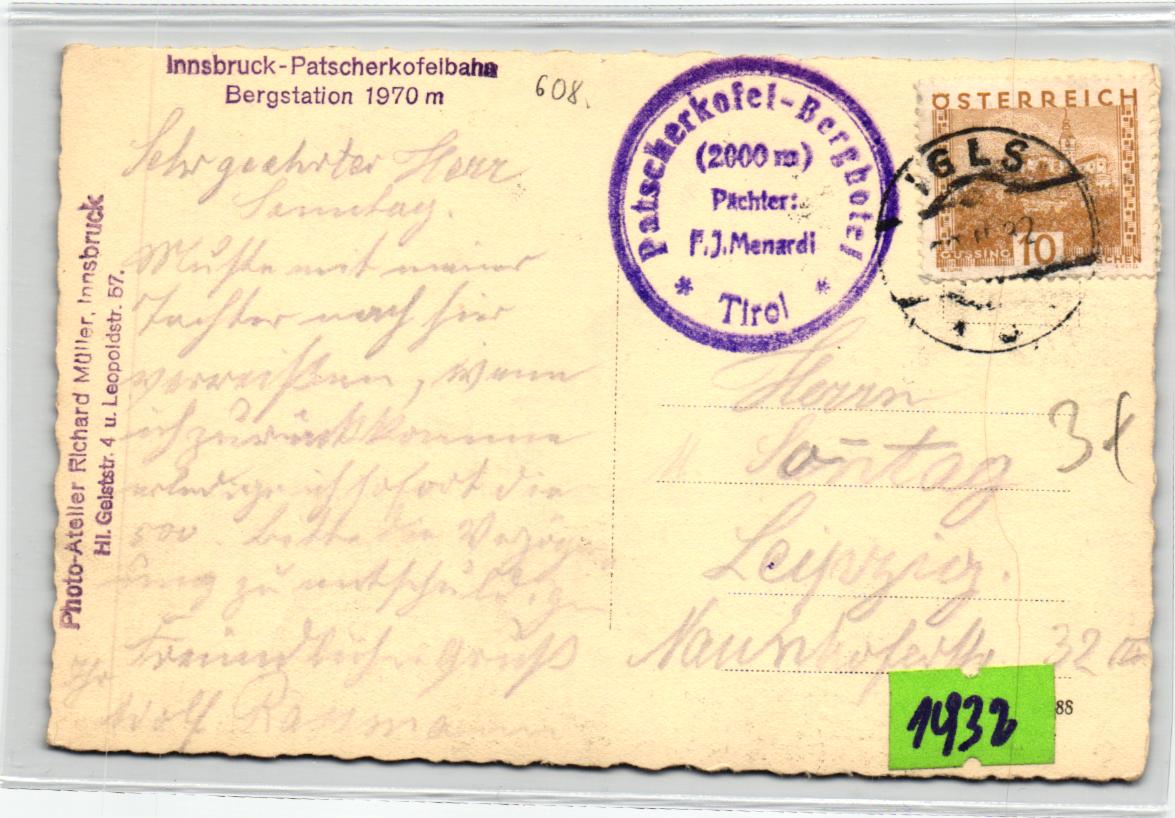 Innsbruck-Patscherkofelbahn
Bergstation 1970 m
608.
Patscherkofel-Berghotel
(2000 m)
Pächter:
F.J. Menardi
* Tirol *
ÖSTERREICH
GÜSSING 10 GROSCHEN
IGLS
Photo-Atelier Richard Müller, Innsbruck
Hl. Geiststr. 4 u. Leopoldstr. 57.
Sehr geehrter Herr
Sonntag.
Mußte mit meiner
Tochter nach hier
verreißen, wenn
ich zurückkomme
erledige ich sofort die
500. Bitte die Verzöge
ung zu entschuldigen
Freundlichen Gruß
Ihr
Adolf
Herrn
Sontag
Leipzig.
Naunhoferstr 32 III
3x
88
1932